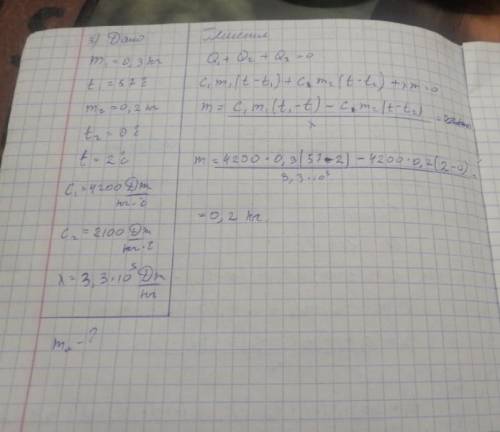 3) Дано
m₁=0,3 кг
t₁=57°C
m₂=0,2 кг
t₂=0°C
t=2°C
C₁=4200 Дж/кг·°C
C₂=2100 Дж/кг·°C
λ=3,3·10⁵ Дж/кг
m₂-?
Решение
Q₁+Q₂+Q₃=0
C₁m₁(t-t₁)+C₂m₂(t-t₂)+λm=0
m=C₁m₁(t₁-t)-C₂m₂(t-t₂)/λ=
m=4200·0,3(57-2)-4200·0,2(2-0)/3,3·10⁵=
=0,2 кг.